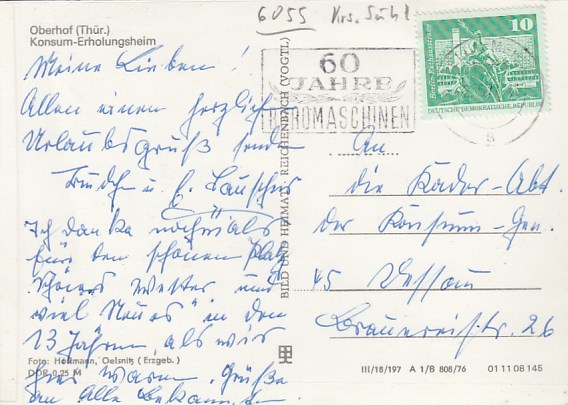 6055 Krs. Suhl
Oberhof (Thür.)
Konsum-Erholungsheim
60
JAHRE
BÜROMASCHINEN
10
Berlin, Rathausstrasse
DEUTSCHE DEMOKRATISCHE REPUBLIK
s
Meine Lieben!
Allen einen herzlichen
Urlaubsgruß senden
Trudchen u.
Ich danke nochmals
für den schönen Platz.
Schönes Wetter und
viel "Neues" in den
13 Jahren, als wir
hier waren. Grüße
an Alle Bekannten.
An
die Kader-Abt.
der Konsum-Gen.
45 Dessau
Brauereistr. 26
BILD UND HEIMAT REICHENBACH (VOGTL)
Foto: Hoffmann, Oelsnitz (Erzgeb.)
DDR 0,25 M
III/18/197 A 1/B 808/76 01 11 08 145